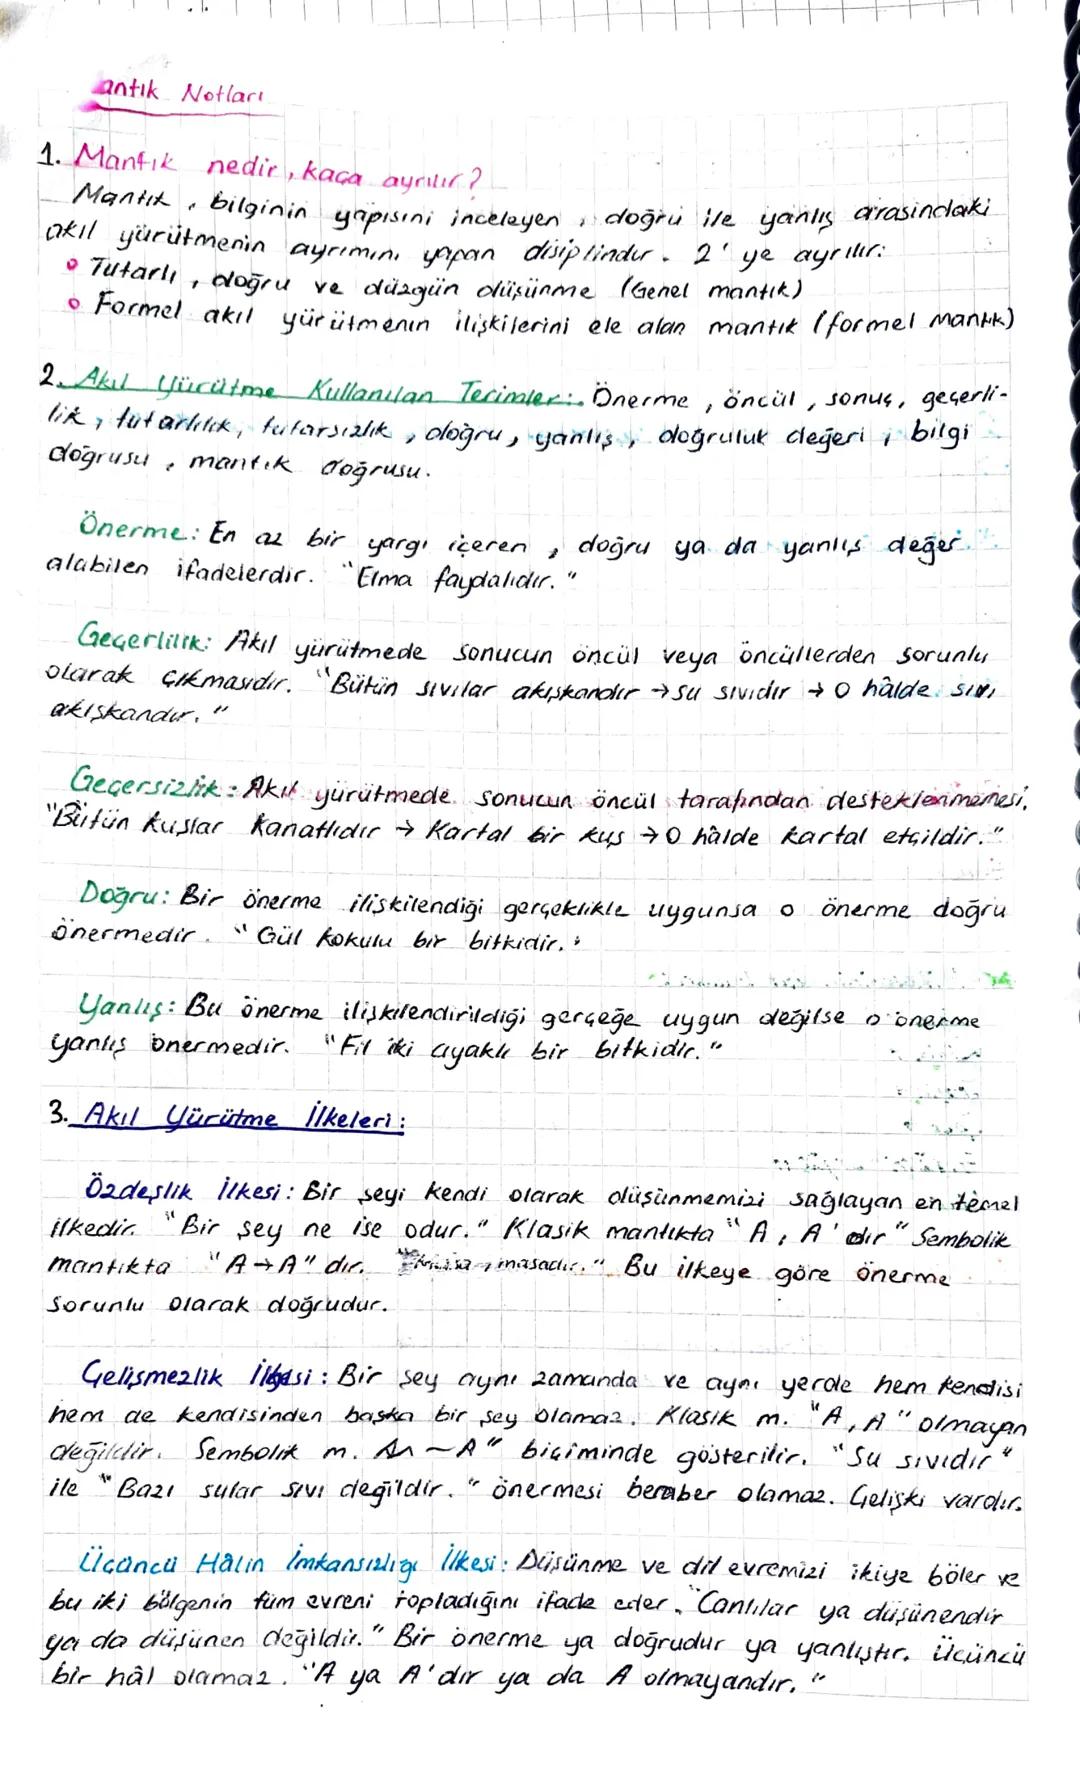 antık Notları
1. Mantık nedir, kaça ayrılır?
Mantık, bilginin yapısını inceleyen, doğru ile yanlış arasındaki
akıl yürütmenin ayrımını yapan disiplindir. 2'ye ayrılır:
o Tutarlı, doğru ve düzgün düşünme (Genel mantık)
o Formel akıl yürütmenin ilişkilerini ele alan mantık (formel Mantık)
2. Akıl Yürütme Kullanılan Terimler: Önerme, öncül, sonuç, geçerli-
lik, tutarlılık, tutarsızlık, doğru, yanlış, doğruluk değeri, bilgi
doğrusu, mantık doğrusu.
Önerme: En az bir yargı içeren, doğru ya da yanlış değer
alabilen ifadelerdir. "Elma faydalıdır."
Geçerlilik: Akıl yürütmede sonucun öncül veya öncüllerden sorunlu
olarak çıkmasıdır. "Bütün sıvılar akışkandır → su sıvıdır → O hâlde sıvı
akışkandır."
Geçersizlik: Akıl yürütmede sonucun öncül tarafından desteklenmemesi.
"Bütün kuşlar kanatlıdır → Kartal bir kuş → O hâlde kartal etçildir."
Doğru: Bir önerme ilişkilendiği gerçeklikle uygunsa o önerme doğru
önermedir. "Gül kokulu bir bitkidir."
Yanlış: Bu önerme ilişkilendirildiği gerçeğe uygun değilse o önerme
yanlış önermedir. "Fil iki ayaklı bir bitkidir."
3. Akıl Yürütme İlkeleri:
Özdeşlik İlkesi: Bir şeyi kendi olarak düşünmemizi sağlayan en temel
ilkedir. "Bir şey ne ise odur." Klasik mantıkta "A, A'dır" Sembolik
mantıkta "A→A" dır. masadır." Bu ilkeye göre önerme
sorunlu olarak doğrudur.
Çelişmezlik İlkesi: Bir şey aynı zamanda ve aynı yerde hem kendisi
hem de kendisinden başka bir şey olamaz. Klasik m. "A, A" olmayan
değildir. Sembolik m. A∧~A" biçiminde gösterilir. "Su sıvıdır"
ile "Bazı sular sıvı değildir." önermesi beraber olamaz. Çelişki vardır.
Üçüncü Hâlin İmkansızlığı İlkesi: Düşünme ve dil evremizi ikiye böler ve
bu iki bölgenin tüm evreni topladığını ifade eder. "Canlılar ya düşünendir
ya da düşünen değildir." Bir önerme ya doğrudur ya yanlıştır. Üçüncü
bir hâl olamaz. "A ya A'dır ya da A olmayandır."